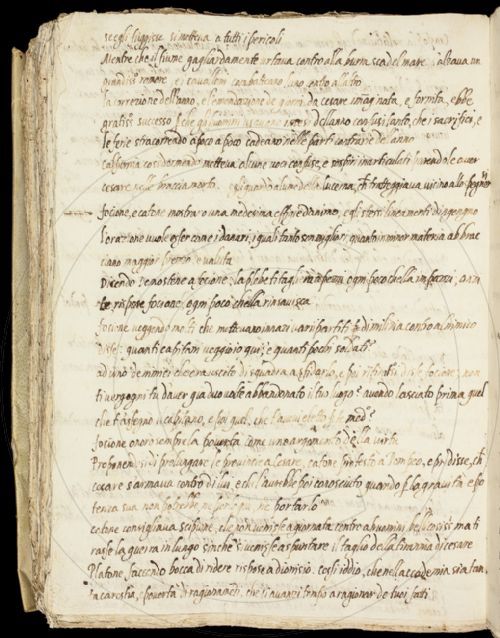 se egli fuggisse si metteva a tutti i pericoli
Mentre che il fiume gagliardamente urtava contro alla burra sca del mare alzava un
grandiss.o romore e i cavalloni combatteano l'uno contro all'altro
la correzione dell'anno, e l'emendazione de giorni da cesare imaginata, e fornita, ebbe
gratiss.o successo che gli uomini i mesi dell'anno confusi fanto, che i sacrifici, e
le ferie stracorrendo a poco a poco cadeano nelle parti contrarie dell'anno
Calfurnia cosi dormendo metteva alcune voci confuse, e sospiri inarticulati parendole aver
cesare nelle braccia morto. egli guardò al lume della lucerna, ch
focione, e catone mostraro una medesima effigie d'animo, e gli stessi lineamenti d'ingegno
l'orazione vuole esser come i danari, i quali tanto son migliori quanto in minor materia abbrac
ciano maggior prezzo e valuta
Dicendo Demostene a focione, la plebe ti taglierà a pezzi ogni poco ch'ella infurii, a m
te rispose focione ogni poco ch'ella rinsavisca
focione veggendo molti che mettevano inanzi vari partiti di milizia contro al nimico
disse: quanti capitani veggio io qui, e quanti pochi soldati
ad uno de nimici ch'era uscito di squadra a sfidarlo, e poi rifuggì, disse focione, non
ti vergogni tu d'aver gia due volte abbandonato il tuo luogo avendo lasciato prima quel
che t'assegnò il capitano, e poi quel, che t'avevi eletto te med.o
focione onorò sempre la povertà come uno argomento della virtù
Proponendosi di prolungare le provincie a Cesare, catone protestò a Pompeo, e predisse, ch
cesare s'armava contro di lui, e ch l'avrebbe poi conosciuto quando p la gravità e po
tenza sua non potrebbe ne portarlo
catone consigliava scipione, che non venisse a giornata contro a huomini bellicosi, ma ti
rasse la guerra in lungo sin che venisse a spuntare il taglio della tirannia di cesare
Platone facendo bocca da ridere rispose a dionisio. così iddio, che nell'accademia sia tan
ta carestia, e povertà di ragionamenti, che ti avanzi tempo a ragionar de tuoi fatti